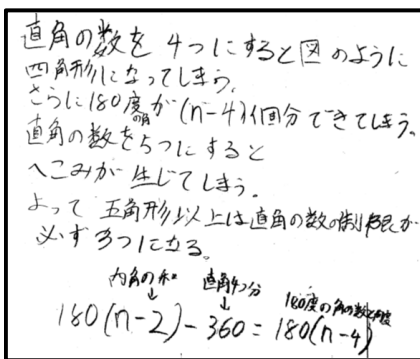 直角の数を4つにすると図のように
四角形になってしまう。
さらに180度の角が(n-4)個分できてしまう。
直角の数を5つにすると
へこみが生じてしまう。
よって五角形以上は直角の数の制限が
必ず3つになる。
内角の和 直角4つ分 180度の角の数と角度
180(n-2)-360=180(n-4)